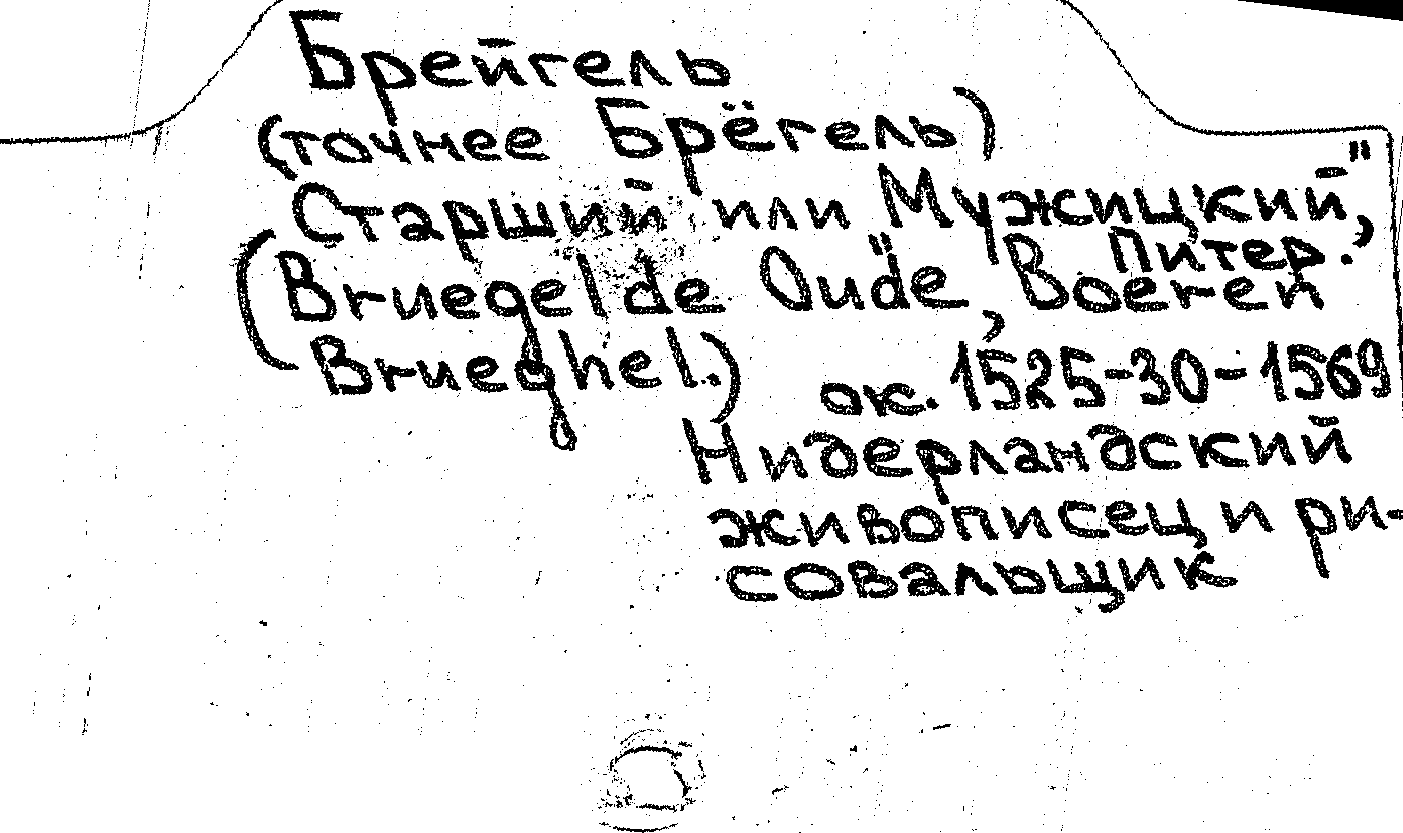 Брейгель
(точнее Брёгель)
Старший или Мужицкий",
Питер.
(Bruegel de Oude", Boeren
Brueghel.)
ок. 1525-30-1569
Нидерландский
живописец и ри-
совальщик